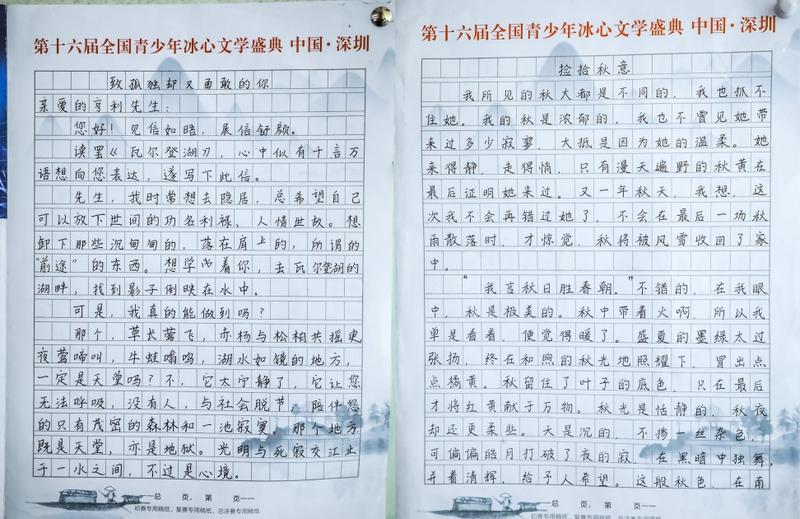 第十六届全国青少年冰心文学盛典 中国·深圳
致孤独却又勇敢的你
亲爱的亨利先生：
您好！见信如晤，展信舒颜。
读罢《瓦尔登湖》，心中似有千言万
语想向您表达，遂写下此信。
先生，我时常想去隐居，总希望自己
可以放下世间的功名利禄、人情世故。想
卸下那些沉甸甸的，落在肩上的，所谓的
“前途”的东西。想学着你，去瓦尔登湖的
湖畔，找到影子倒映在水中。
可是，我真的能做到吗？
那个，草长莺飞，赤杨与松柏共摇曳
夜莺啼叫，牛蛙嗡鸣，湖水如镜的地方，
一定是天堂吗？不，它太宁静了，它让您
无法呼吸，没有人，与社会脱节，陪伴您
的只有茂密的森林和一池寂寥，那个地方
既是天堂，亦是地狱。光明与死寂交江止
于一水之间，不过是心境。
总 页，第 页
初赛专用稿纸、复赛专用稿纸、总决赛专用稿纸
第十六届全国青少年冰心文学盛典 中国·深圳
捡拾秋意
我所见的秋大都是不同的，我也抓不
住她。我的秋是浓郁的，我也不曾见她带
来过多少寂寥，大抵是因为她的温柔。她
来得静，走得悄，只有漫天遍野的秋黄在
最后证明她来过。又一年秋天，我想，这
次我不会再错过她了，不会在最后一场秋
雨散落时，才惊觉，秋将被风雪收回了家
中。
“我言秋日胜春朝。”不错的，在我眼
中，秋是极美的。秋中带着火啊，所以我
单是看着，便觉得暖了。盛夏的墨绿太过
张扬，终在和煦的秋光地照耀下，冒出点
点橘黄。秋留住了叶子的底色，只在最后
才将红黄献于万物。秋光是恬静的，秋夜
却还更柔些。天是沉的，不掺一丝杂色，
可偏偏皓月打破了夜的寂，在黑暗中独舞，
并着清辉，给予人希望。这般秋色，在南
总 页，第 页
初赛专用稿纸、复赛专用稿纸、总决赛专用稿纸